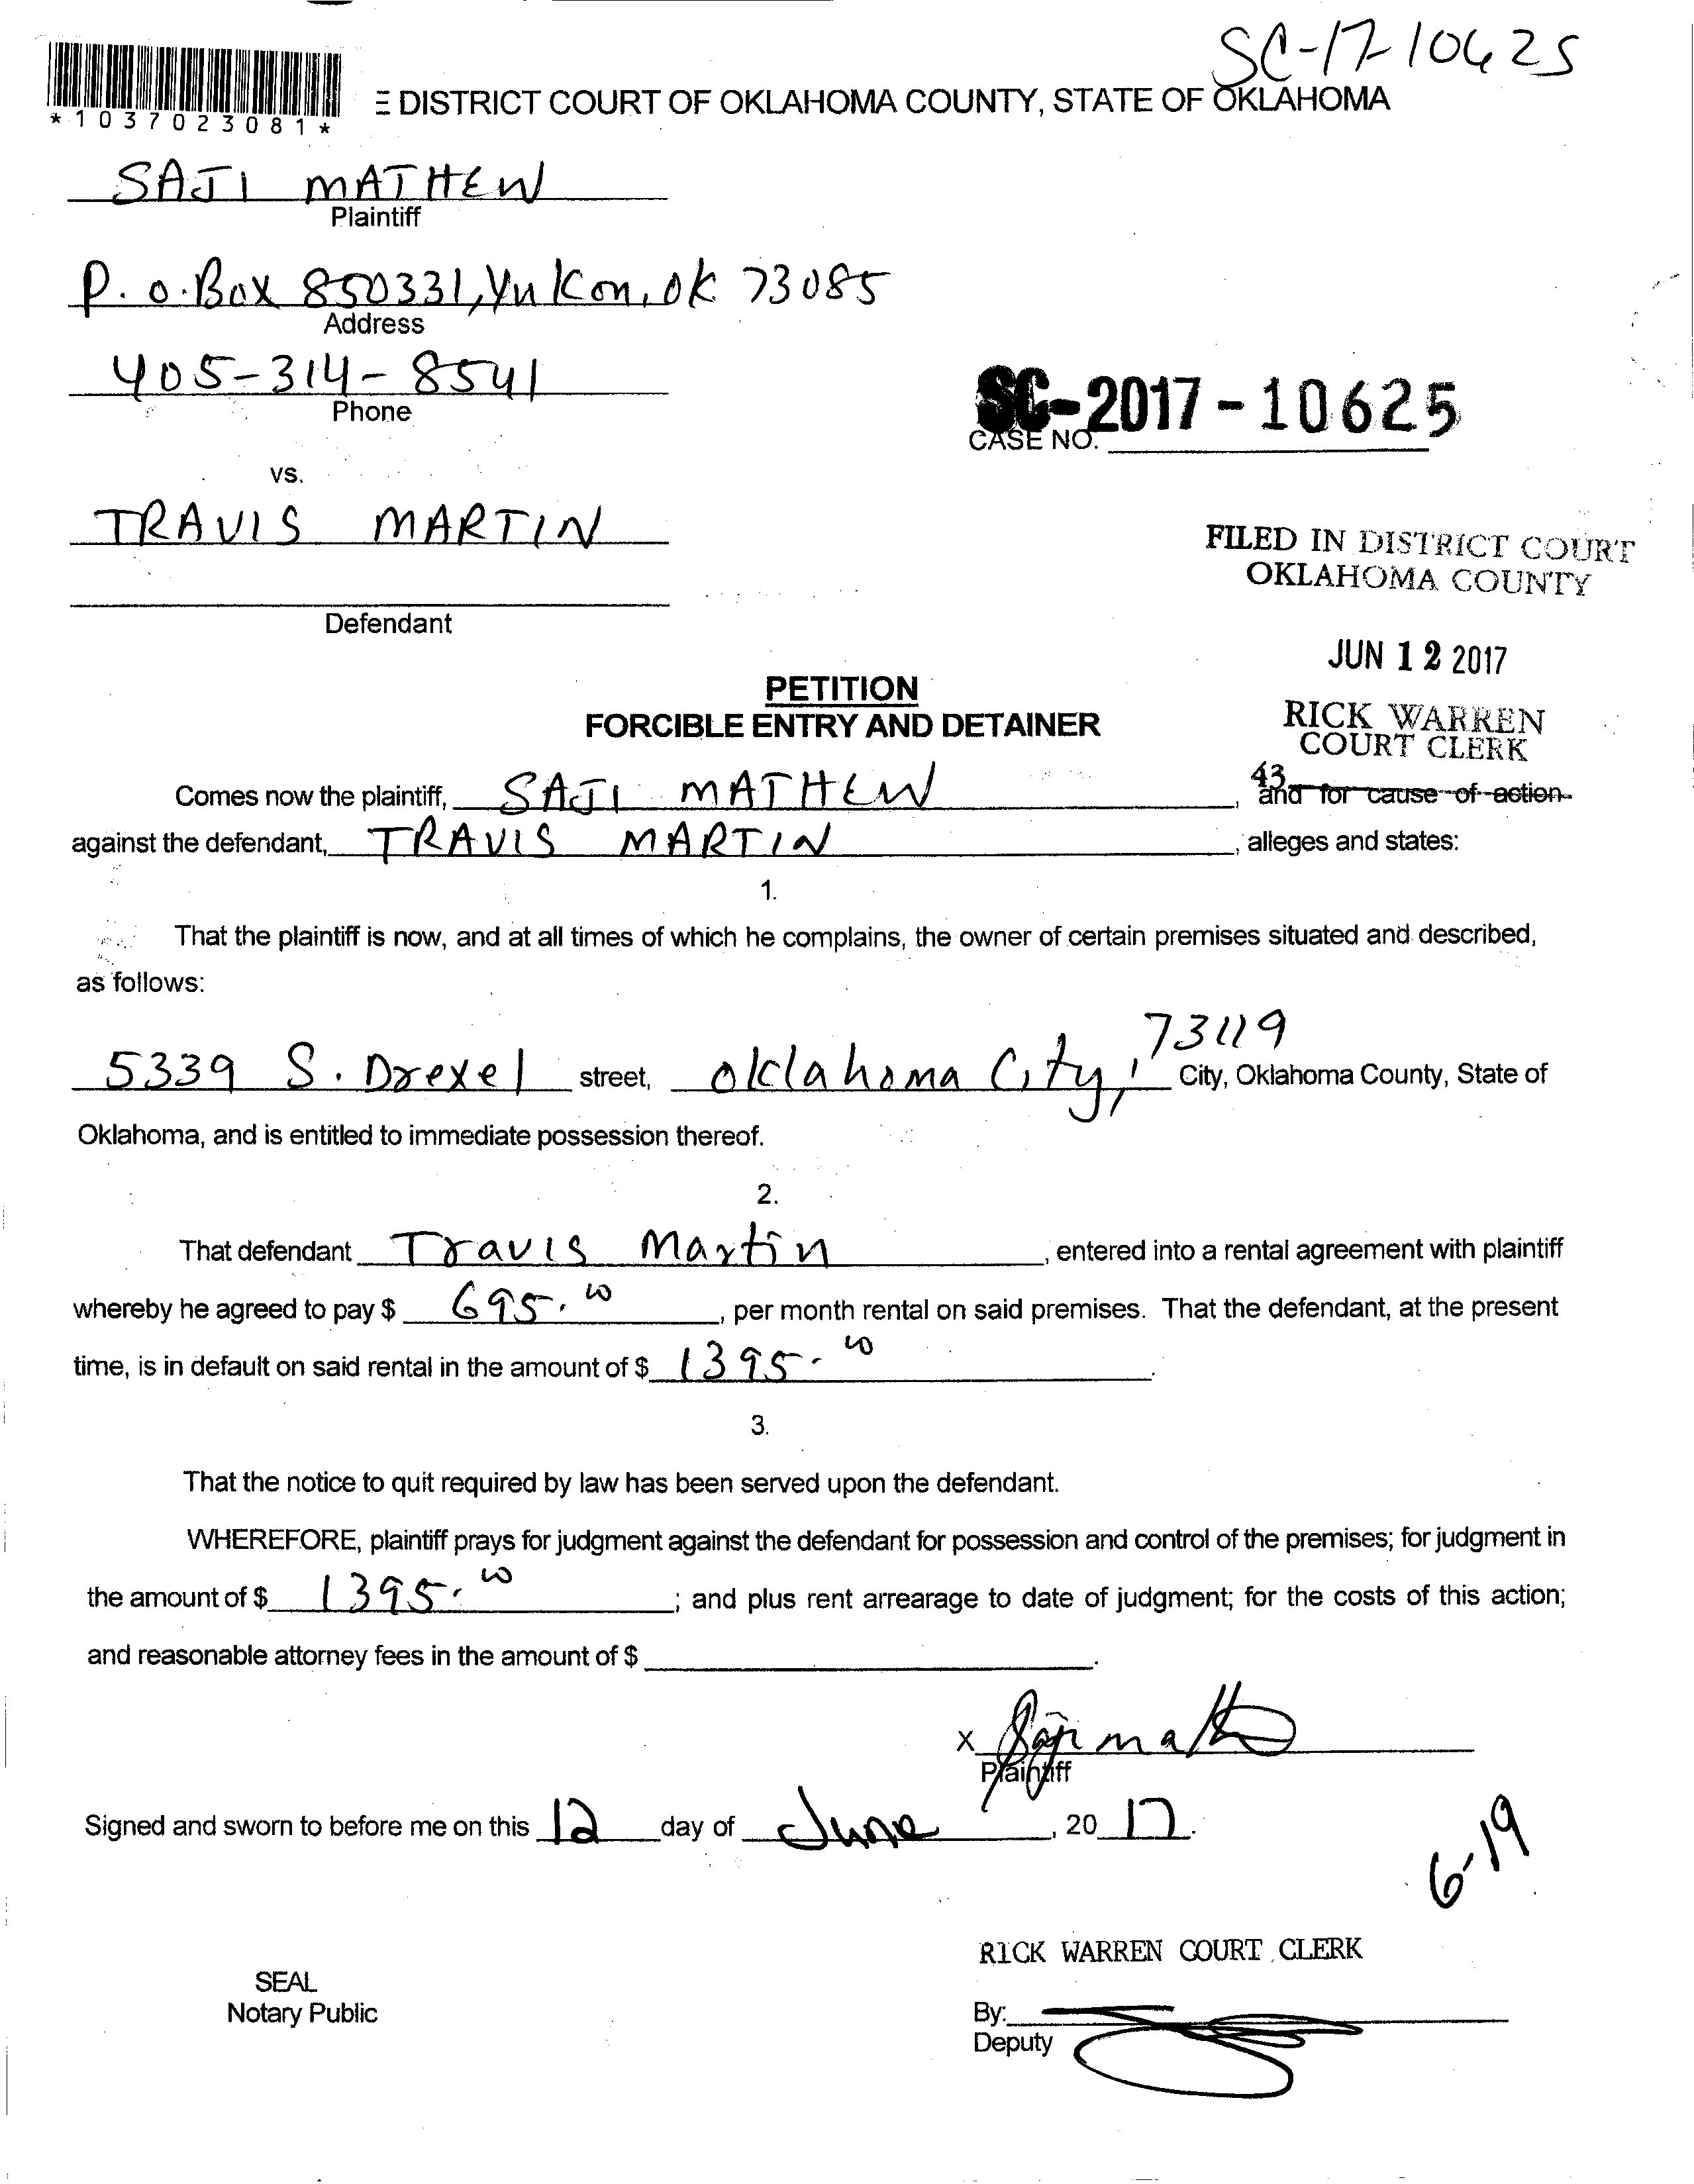 SC-17-10625
*1037023081*
E DISTRICT COURT OF OKLAHOMA COUNTY, STATE OF OKLAHOMA
SAJI MATHEW
Plaintiff
P.O.Box 850331, Yukon, OK 73085
Address
405-314-8541
Phone
SC-2017-10625
CASE NO.
vs.
TRAVIS MARTIN
Defendant
FILED IN DISTRICT COURT
OKLAHOMA COUNTY
JUN 12 2017
RICK WARREN
COURT CLERK
43
PETITION
FORCIBLE ENTRY AND DETAINER
Comes now the plaintiff, SAJI MATHEW, and for cause of action
against the defendant, TRAVIS MARTIN, alleges and states:
1.
That the plaintiff is now, and at all times of which he complains, the owner of certain premises situated and described,
as follows:
5339 S. Drexel street, Oklahoma City, 73119 City, Oklahoma County, State of
Oklahoma, and is entitled to immediate possession thereof.
2.
That defendant Travis Martin, entered into a rental agreement with plaintiff
whereby he agreed to pay $ 695.00, per month rental on said premises. That the defendant, at the present
time, is in default on said rental in the amount of $ 1395.00.
3.
That the notice to quit required by law has been served upon the defendant.
WHEREFORE, plaintiff prays for judgment against the defendant for possession and control of the premises; for judgment in
the amount of $ 1395.00; and plus rent arrearage to date of judgment; for the costs of this action;
and reasonable attorney fees in the amount of $ .
X Saji Mathew
Plaintiff
Signed and sworn to before me on this 12 day of June, 2017.
6-19
RICK WARREN COURT CLERK
SEAL
Notary Public
By:
Deputy